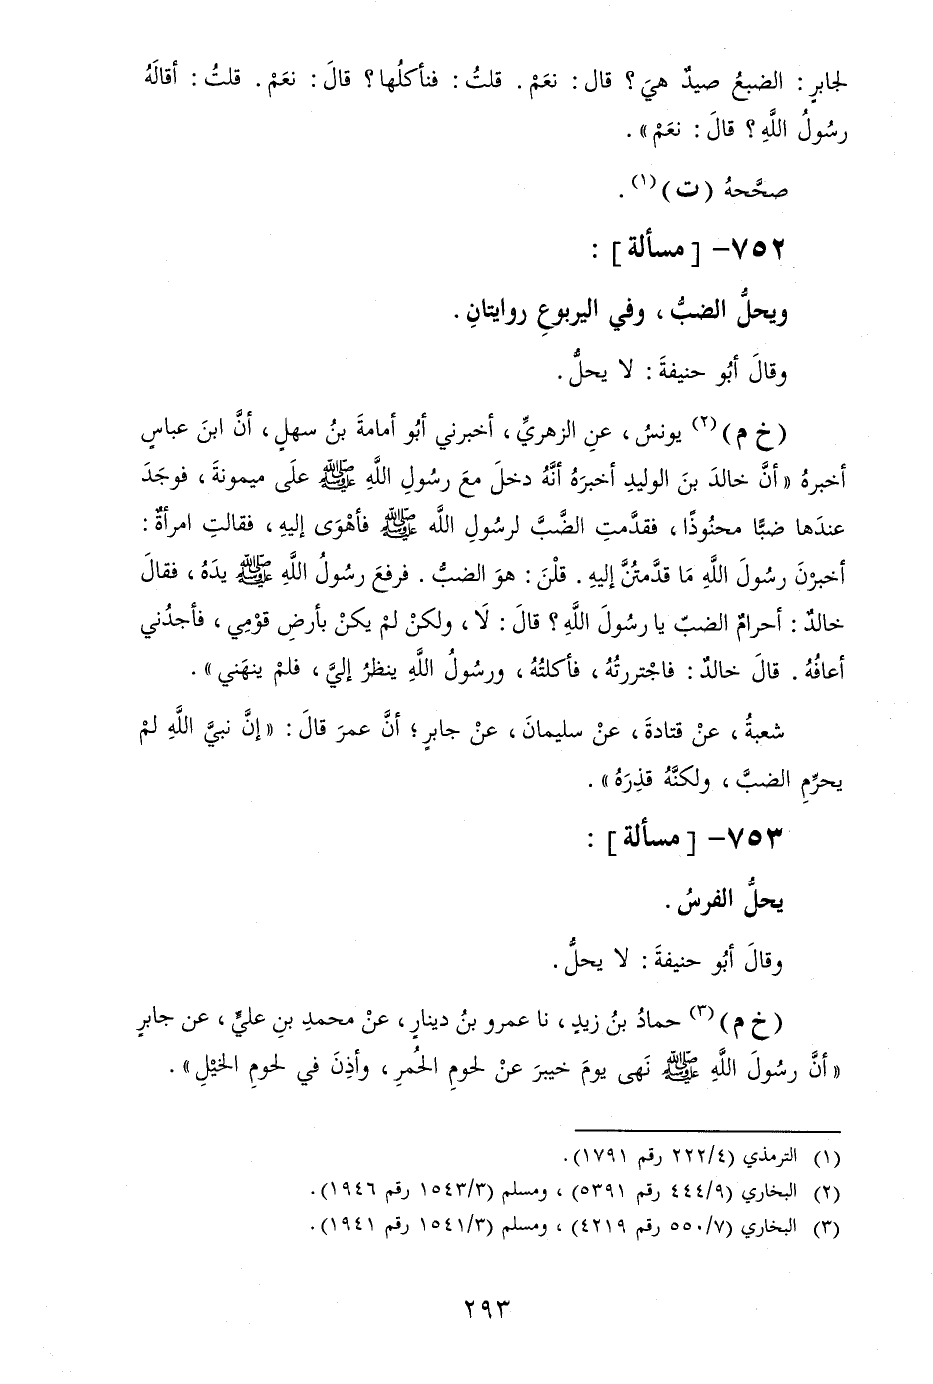 لجابرٍ : الضبعُ صيدٌ هيَ ؟ قال : نعَمْ . قلتُ : فنأكلُها ؟ قالَ : نعَمْ . قلتُ : أقالَهُ
رسُولُ اللَّهِ ؟ قالَ : نعَمْ » .
صحَّحهُ ( ت )(١) .
٧٥٢- [ مسألة ] :
ويحلُّ الضبُّ ، وفي اليربوعِ روايتانِ .
وقالَ أبُو حنيفةَ : لا يحلُّ .
( خ م )(٢) يونسُ ، عنِ الزهريِّ ، أخبرني أبُو أمامةَ بنُ سهلٍ ، أنَّ ابنَ عباسٍ
أخبرهُ « أنَّ خالدَ بنَ الوليدِ أخبرَهُ أنَّهُ دخلَ معَ رسُولِ اللَّهِ ﷺ علَى ميمونةَ ، فوجَدَ
عندَها ضبًّا محنُوذًا ، فقدَّمتِ الضَّبَّ لرسُولِ اللَّه ﷺ فأهْوَى إليهِ ، فقالتِ امرأةٌ :
أخبرْنَ رسُولَ اللَّهِ مَا قدَّمتُنَّ إليهِ . قلْنَ : هوَ الضبُّ . فرفعَ رسُولُ اللَّهِ ﷺ يدَهُ ، فقالَ
خالدٌ : أحرامٌ الضبّ يا رسُولَ اللَّهِ ؟ قالَ : لَا ، ولكنْ لمْ يكنْ بأرضِ قوْمِي ، فأجدُني
أعافُهُ . قالَ خالدٌ : فاجْتررتُهُ ، فأكلتُهُ ، ورسُولُ اللَّهِ ينظرُ إليَّ ، فلمْ ينهَني » .
شعبةُ ، عنْ قتادةَ ، عنْ سليمانَ ، عنْ جابرٍ ؛ أنَّ عمرَ قالَ : « إنَّ نبيَّ اللَّهِ لمْ
يحرِّمِ الضبَّ ، ولكنَّهُ قذِرَهُ » .
٧٥٣- [ مسألة ] :
يحلُّ الفرسُ .
وقالَ أبُو حنيفةَ : لا يحلُّ .
( خ م )(٣) حمادُ بنُ زيدٍ ، نا عمرو بنُ دينارٍ ، عنْ محمدِ بنِ عليٍّ ، عن جابرٍ
« أنَّ رسُولَ اللَّهِ ﷺ نَهى يومَ خيبرَ عنْ لحومِ الحُمرِ ، وأذِنَ في لحومِ الخيْلِ » .
(١) الترمذي (٢٢٢/٤ رقم ١٧٩١).
(٢) البخاري (٤٤٤/٩ رقم ٥٣٩١) ، ومسلم (١٥٤٣/٣ رقم ١٩٤٦).
(٣) البخاري (٥٥٠/٧ رقم ٤٢١٩) ، ومسلم (١٥٤١/٣ رقم ١٩٤١).
٢٩٣